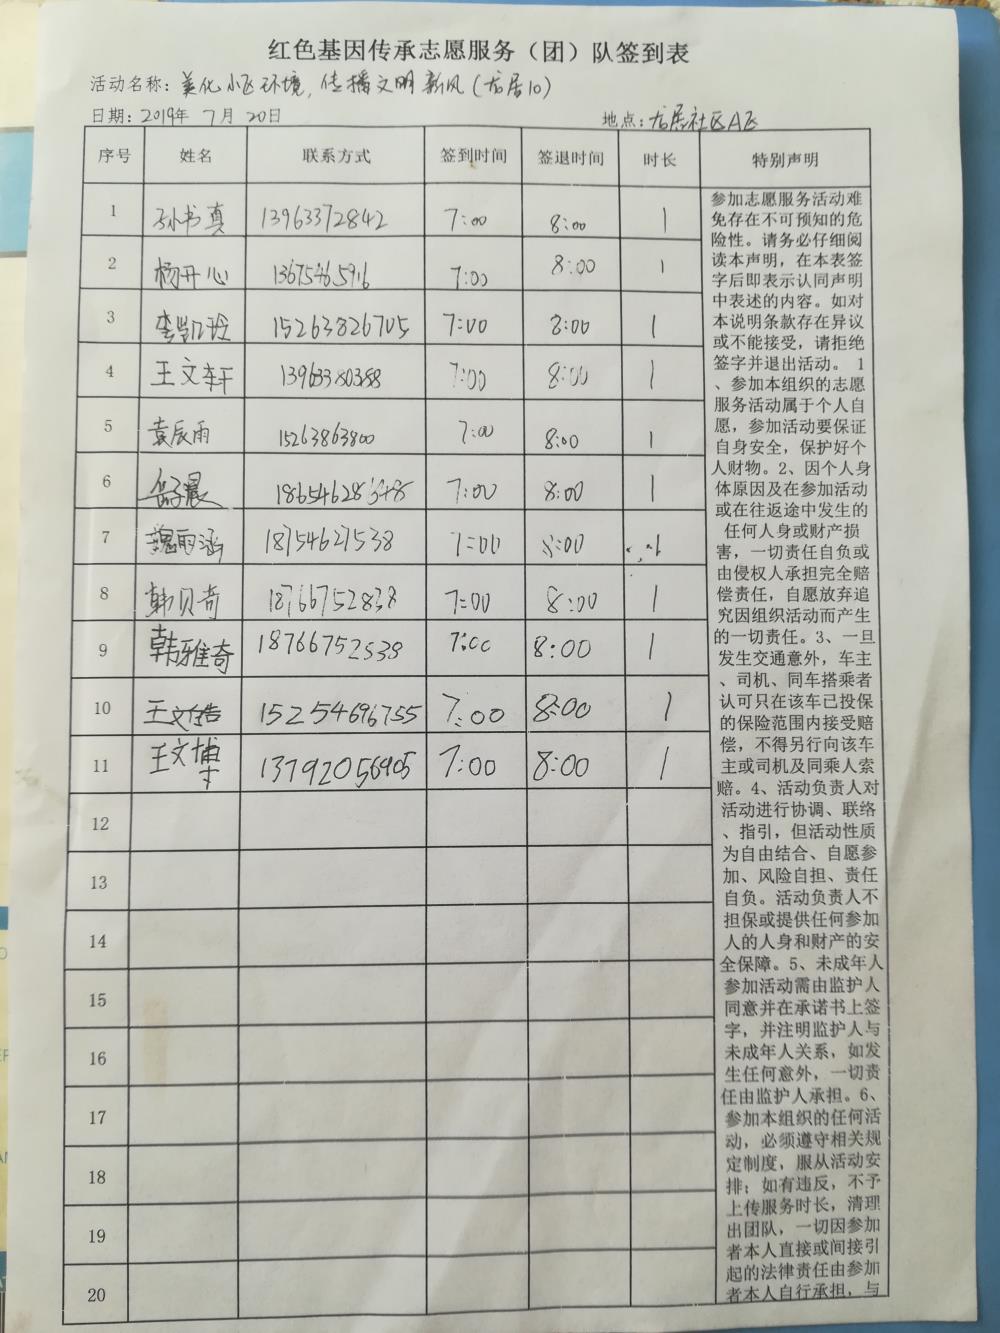 红色基因传承志愿服务（团）队签到表
活动名称：美化小区环境，传播文明新风（龙居10）
日期：2019年 7月 20日 地点：龙居社区A区
序号 姓名 联系方式 签到时间 签退时间 时长 特别声明
1 孙书真 13963372842 7:00 8:00 1
2 杨开心 13675465916 7:00 8:00 1
3 李凯玲 15263826705 7:00 8:00 1
4 王文轩 13963380388 7:00 8:00 1
5 袁辰雨 15263863800 7:00 8:00 1
6 7:00 8:00 1
7 魏雨涵 18754621538 7:00 8:00 1
8 韩贝奇 18766752838 7:00 8:00 1
9 韩雅奇 18766752538 7:00 8:00 1
10 王文 15254696755 7:00 8:00 1
11 王文博 13792056905 7:00 8:00 1
12
13
14
15
16
17
18
19
20
参加志愿服务活动难
免存在不可预知的危
险性。请务必仔细阅
读本声明，在本表签
字后即表示认同声明
中表述的内容。如对
本说明条款存在异议
或不能接受，请拒绝
签字并退出活动。 1
、参加本组织的志愿
服务活动属于个人自
愿，参加活动要保证
自身安全，保护好个
人财物。2、因个人身
体原因及在参加活动
或在往返途中发生的
任何人身或财产损
害，一切责任自负或
由侵权人承担完全赔
偿责任，自愿放弃追
究因组织活动而产生
的一切责任。3、一旦
发生交通意外，车主
、司机、同车搭乘者
认可只在该车已投保
的保险范围内接受赔
偿，不得另行向该车
主或司机及同乘人索
赔。4、活动负责人对
活动进行协调、联络
、指引，但活动性质
为自由结合、自愿参
加、风险自担、责任
自负。活动负责人不
担保或提供任何参加
人的人身和财产的安
全保障。5、未成年人
参加活动需由监护人
同意并在承诺书上签
字，并注明监护人与
未成年人关系，如发
生任何意外，一切责
任由监护人承担。6、
参加本组织的任何活
动，必须遵守相关规
定制度，服从活动安
排；如有违反，不予
上传服务时长，清理
出团队，一切因参加
者本人直接或间接引
起的法律责任由参加
者本人自行承担，与